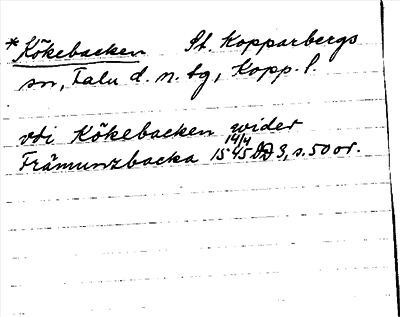 *Kökebacken St. Kopparbergs
sn, Falu d. n. tg, Kopp. l.
vti Kökebacken wider
Främunzbacka 15 14/4 45 DD 3, s. 50 or.